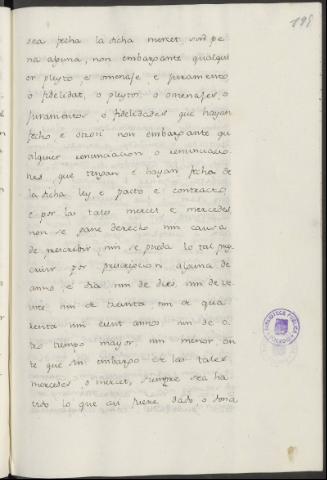 198
sea fecha la dicha mercet, sin pe
na alguna, non embargante qualqui
er pleyto, e omenaje, e juramento
o fidelidat, o pleytos, o omenajes, o
juramentos, o fidelidades que hayan
fecho e non embargante qu
alquier renunciacion o renunciacio
nes que tengan e hayan fecha de
la dicha ley, e pacto e contracto,
e por las tales merced e mercedes
non se gane derecho nin causa
de prescribir, nin se pueda lo tal
por prescripcion alguna de
anno, e dia, nin de dies, nin de ve
inte nin de treinta nin de qua
renta nin cient annos, nin de o
tro tiempo mayor, nin menor, an
te que sin embargo de las tales
mercedes, o mercet, siempre sea ha
vido lo que asi fuere dado, o dona
BIBLIOTECA PUBLICA
TOLEDO